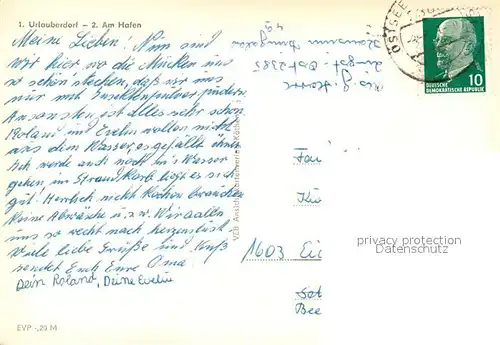 1. Urlauberdorf – 2. Am Hafen
Meine Lieben! Nun sind
wir hier wo die Mücken uns
so schön stechen, daß wir uns
nur mit Insektenpulver pudern
Ansonsten ist alles sehr schön
Roland und Evelin wollen nicht
aus dem Wasser, es gefällt ihnen
Ich werde auch noch ins Wasser
gehen, im Strandkorb liegt es sich
gut! Herrlich, nicht kochen brauchen
keine Abwäsche u.s.w. Wir aalen
uns so recht nach herzenslust.
Viele liebe Grüße und Kuß
sendet Euch Eure Oma.
Dein Roland, Deine Evelin
EVP -,20 M
VEB
49
Zingst Ost 2385
OSTSEE
10
DEUTSCHE
DEMOKRATISCHE REPUBLIK
1603 Eic
Bee
privacy protection
Datenschutz